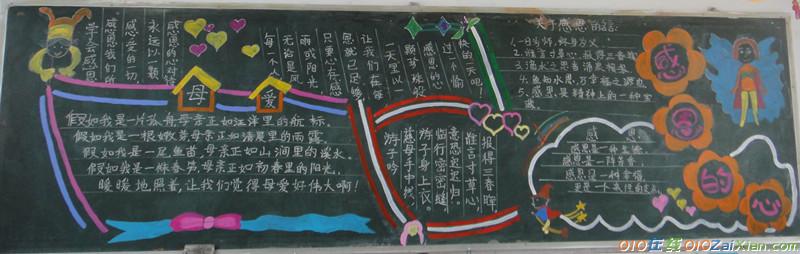 学会感恩
感恩我们所
感受的一切
永远以一颗
感恩的心对待
每一个人
无论是风
雨或阳光
只要心有感
恩就已足够
让我们在每
一天里以一
颗珍珠般
感恩的心
过一个愉
快的一天吧!
母爱
假如我是一片孤舟,母亲正如江洋里的航标。
假如我是一根嫩芽,母亲正如清晨里的雨露。
假如我是一尾鱼苗,母亲正如山涧里的溪水。
假如我是一株春笋,母亲正如初春里的阳光。
暖暖地照着,让我们觉得母爱好伟大啊!
游子吟
慈母手中线,
游子身上衣。
临行密密缝,
意恐迟迟归。
谁言寸草心,
报得三春晖
关于感恩的话:
1.一日为师,终身为父。
2.谁言寸草心,报得三春晖
3.滴水之恩当涌泉相报
4.鱼知水恩,乃幸福之源也
5.感恩是精神上的一种宝
藏。
感恩的心
感恩
感恩是一种美德
感恩是一阵芳香,
感恩是一种幸福
更是一个
010在线010ZaiXian.com